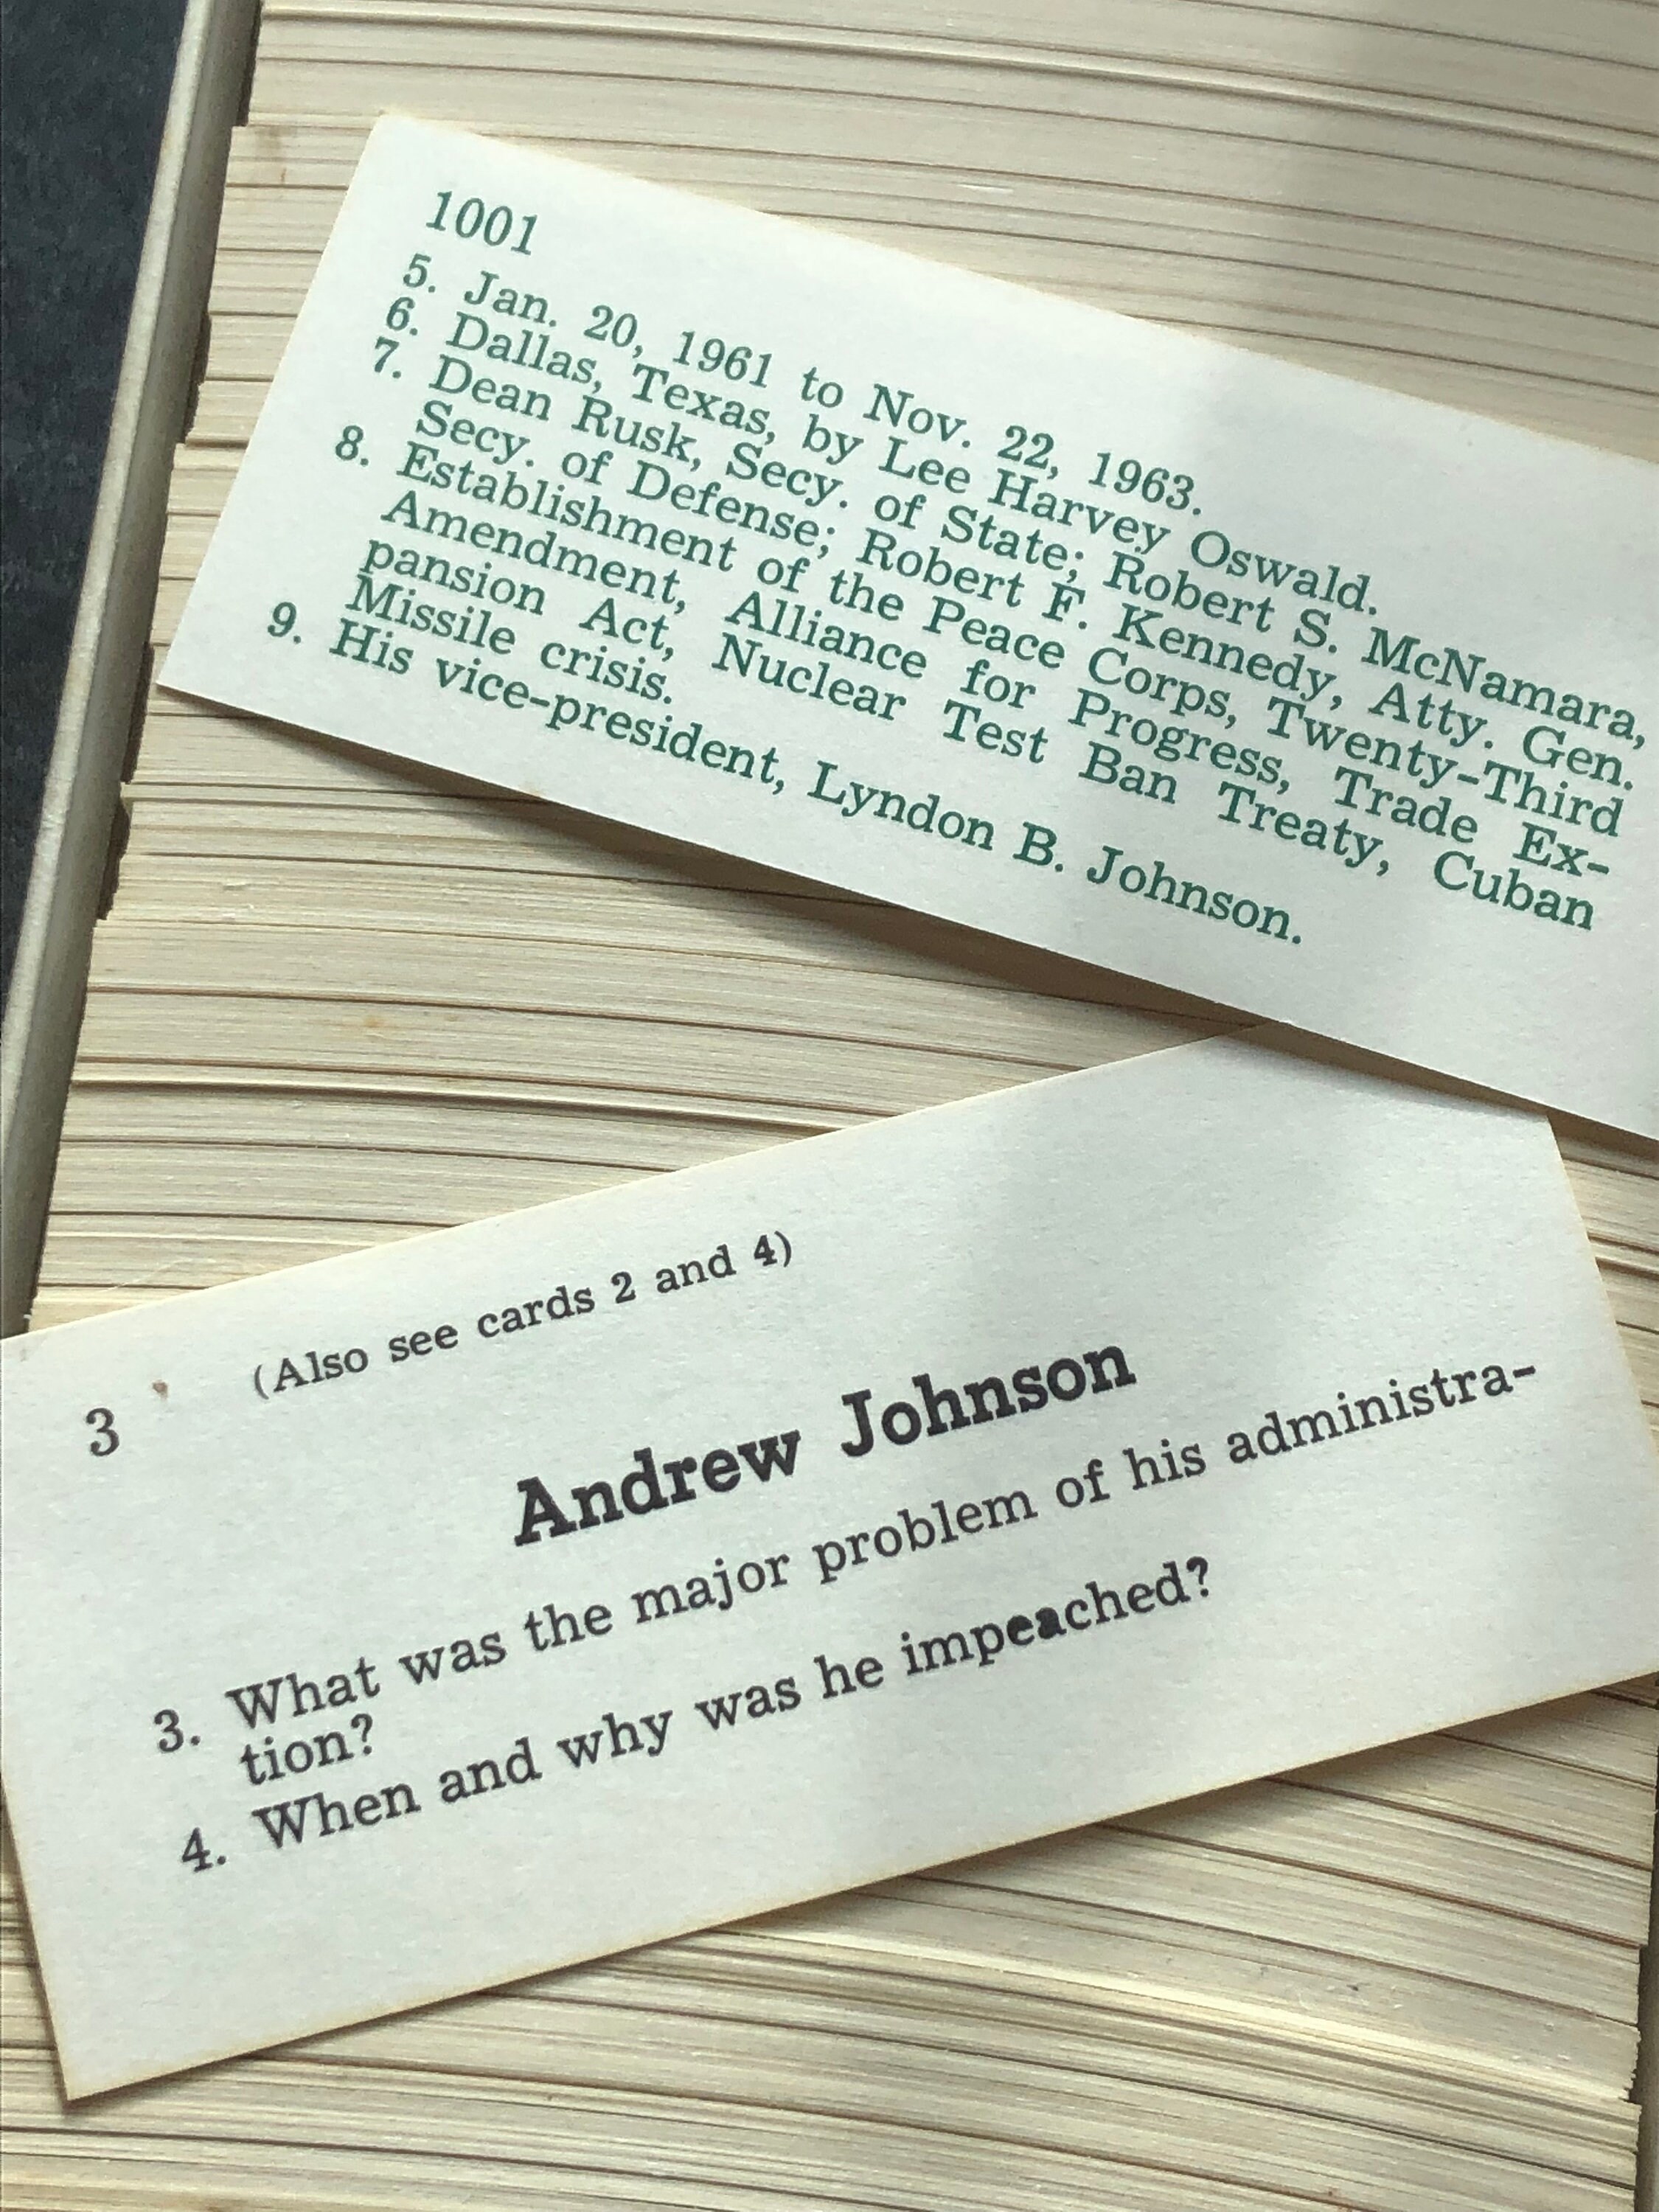 1001
5. Jan. 20, 1961 to Nov. 22, 1963.
6. Dallas, Texas, by Lee Harvey Oswald.
7. Dean Rusk, Secy. of State; Robert S. McNamara,
Secy. of Defense; Robert F. Kennedy, Atty. Gen.
8. Establishment of the Peace Corps, Twenty-Third
Amendment, Alliance for Progress, Trade Ex-
pansion Act, Nuclear Test Ban Treaty, Cuban
Missile crisis.
9. His vice-president, Lyndon B. Johnson.
3 (Also see cards 2 and 4)
Andrew Johnson
3. What was the major problem of his administra-
tion?
4. When and why was he impeached?